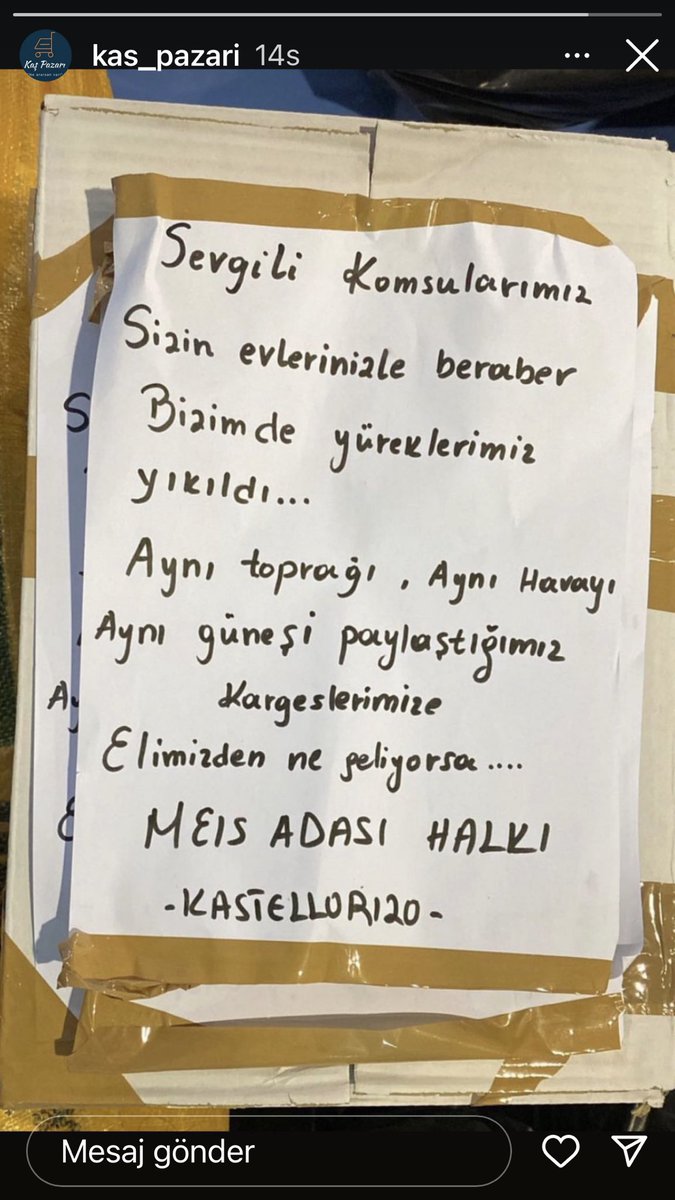 kas_pazari 14s
Kaş Pazarı
Sevgili Komsularımız
Sizin evlerinizle beraber
Bizimde yüreklerimiz
yıkıldı...
Aynı toprağı, Aynı Havayı
Aynı güneşi paylaştığımız
Kargeslerimize
Elimizden ne geliyorsa....
MEIS ADASI HALKI
-KASTELLORIZO-
S
Ay
E
Mesaj gönder